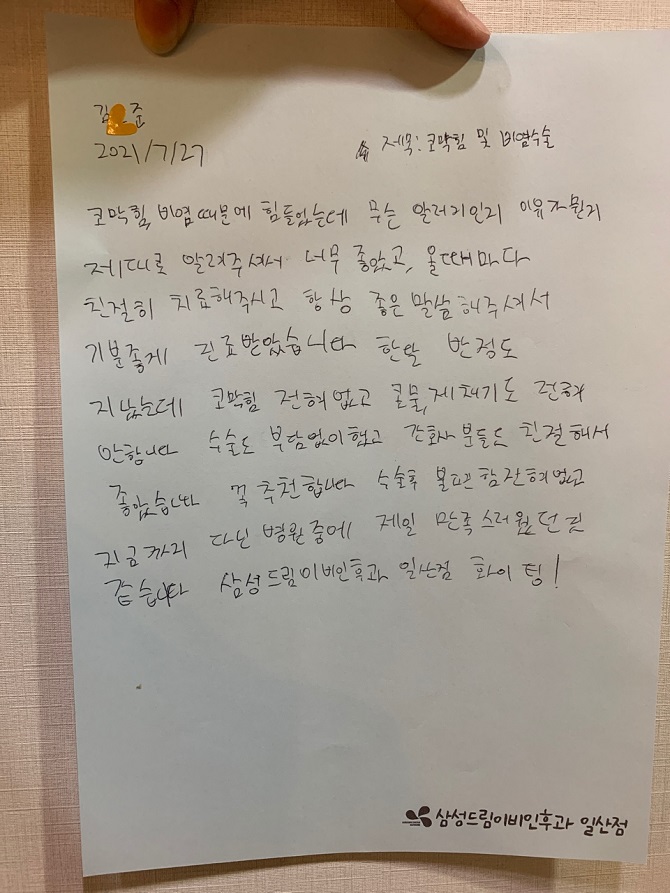 김 준
2021/7/27
제목: 코막힘 및 비염수술
코막힘, 비염 때문에 힘들었는데 무슨 알러지인지 이유가 뭔지
제대로 알려주셔서 너무 좋았고, 올때마다
친절히 치료해주시고 항상 좋은 말씀 해주셔서
기분좋게 진료받았습니다 한달 반정도
지났는데 코막힘 전혀 없고 콧물, 재채기도 전혀
안합니다 수술도 부담없이 했고 간호사 분들도 친절해서
좋았습니다 꼭 추천합니다 수술후 불편함 전혀 없고
지금까지 다닌 병원 중에 제일 만족스러웠던 것
같습니다 삼성드림이비인후과 일산점 화이팅!
삼성드림이비인후과 일산점